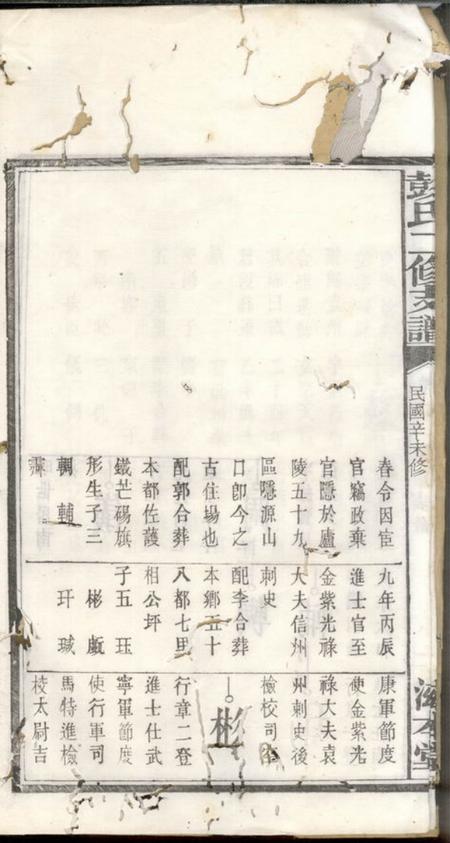 彭氏二修支譜
民國辛未修
春令因宦
官竊政棄
官隱於廬
陵五十九
區隱源山
口卽今之
古住場也
配郭合葬
本都佐護
鐵芒碭旗
形生子三
輞 輔
九年丙辰
進士官至
金紫光祿
大夫信州
刺史
配李合葬
本鄉五十
八都七里
相公坪
子五 珏
彬
玕 瑊
康軍節度
使金紫光
祿大夫袁
州刺史後
檢校司空
彬
行章二登
進士仕武
寧軍節度
使行軍司
馬特進檢
校太尉吉